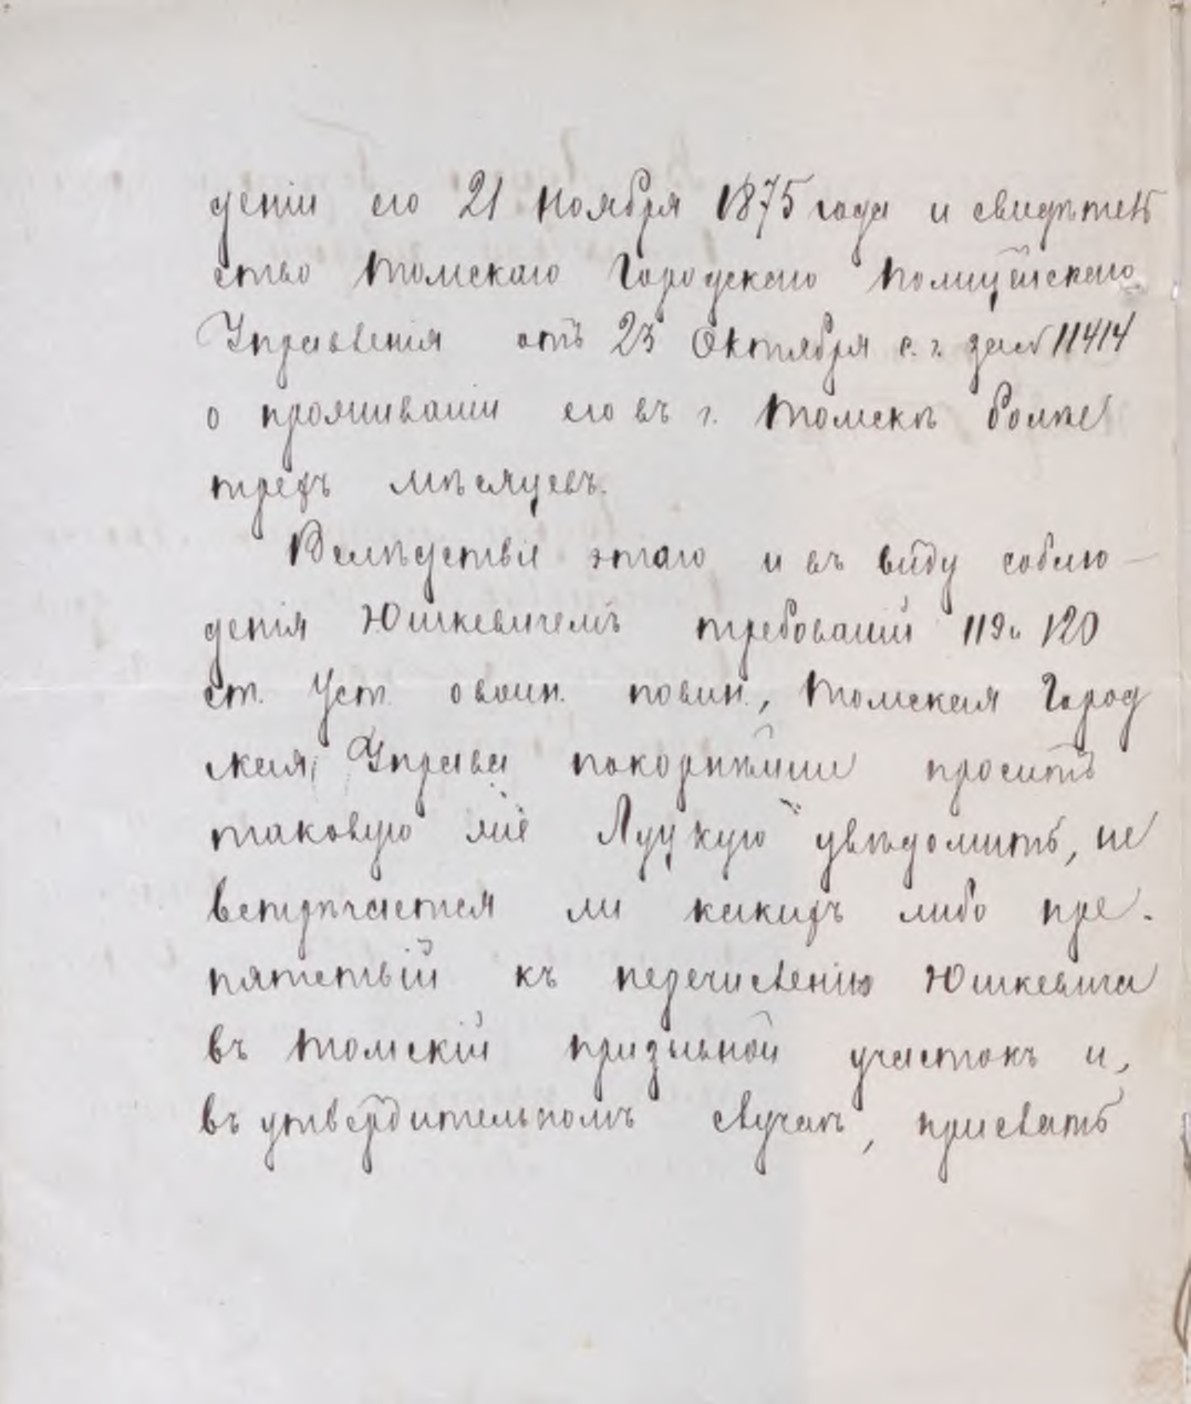 деніи его 21 Ноября 1875 года и свидѣтель
ство Томскаго Городскаго Полицейскаго
Управленія отъ 23 Октября с. г. за № 11414
о проживаніи его въ г. Томскѣ болѣе
трехъ мѣсяцевъ.
Вслѣдствіе этаго и въ виду соблю-
денія Юшкевичемъ требованій 119 и 120
ст. Уст. о воин. повин., Томская Город
ская Управа покорнѣйше проситъ
таковую же Луцкую увѣдомить, не
встрѣчается ли какихъ либо пре-
пятствій къ перечисленію Юшкевича
въ Томскій призывной участокъ и,
въ утвердительномъ случаѣ, прислать